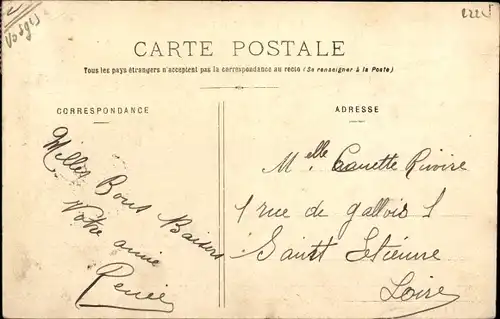 Vosges
222
CARTE POSTALE
Tous les pays étrangers n'acceptent pas la correspondance au recto (Se renseigner à la Poste)
CORRESPONDANCE
Milles Bons Baisers
Votre amie
Renée
ADRESSE
Melle Rivire
1 rue de gallois 1
Saint Etienne
Loire